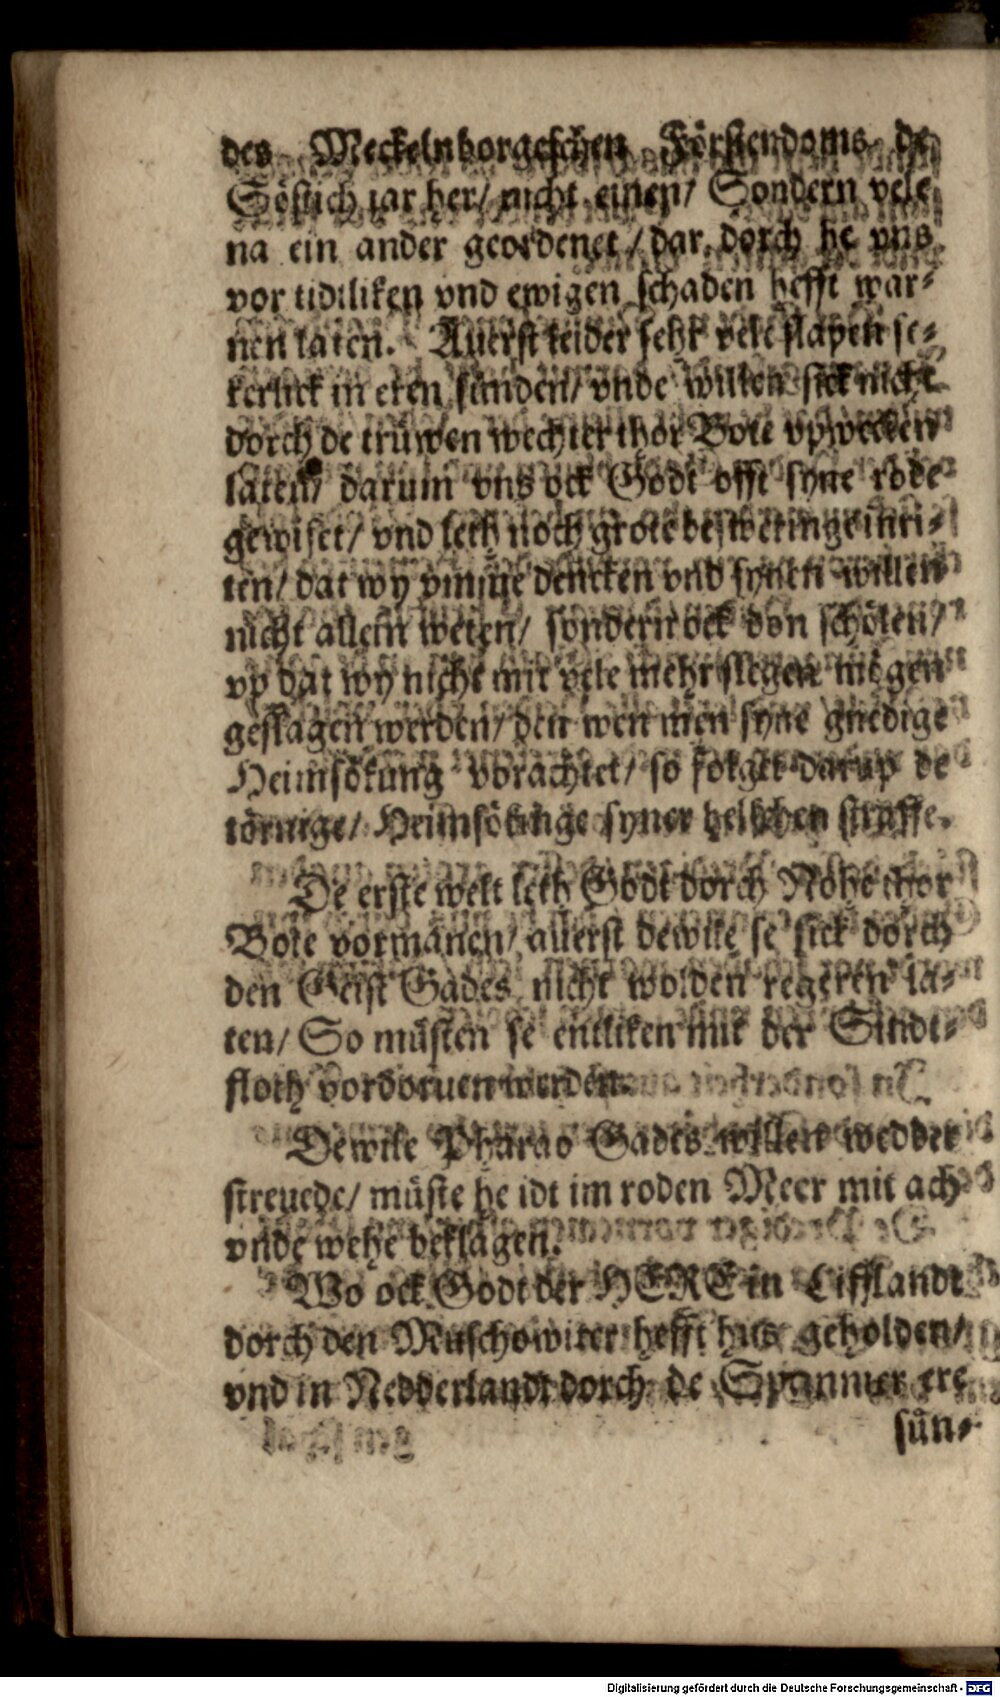 des Meckelnborgeschen Förstendoms de
Söstich jar her/ nicht einen/ Sondern vele
na ein ander geordenet / dar dorch he vns
vor tidtliken vnd ewigen schaden hefft war-
nen laten. Auerst leider sehr vele slapen se-
kerlick in eren sünden/ vnde willen sick nicht
dorch de trüwen wechter thor Bote vpwecken
laten/ darum vns ock Godt offt syne rode
gewiset/ vnd leth noch grote besweringe inri-
ten/ dat wy vmme dencken vnd synen willen
nicht allein weten/ sondern ock don schölen/
vp dat wy nicht mit vele mehr slegen mögen
geslagen werden/ den wen men syne gnedige
Heimsökung vorachtet/ so folget darup de
törnige/ Heimsökinge syner helschen straffe.
De erste welt leth Godt dorch Nohe thor
Bote vormanen/ auerst dewile se sick dorch
den Geist Gades nicht wolden regeren la-
ten/ So müsten se entliken mit der Sindt-
floth vordoruen werden.
Dewile Pharao Gades willen wedder
streuede/ müste he idt im roden Meer mit ach
vnde wehe beklagen.
Wo ock Godt der HERE in Lifflandt
dorch den Muschowiter hefft hus geholden/
vnd in Nedderlandt dorch de Spannier ere
sün-
Digitalisierung gefördert durch die Deutsche Forschungsgemeinschaft - DFG